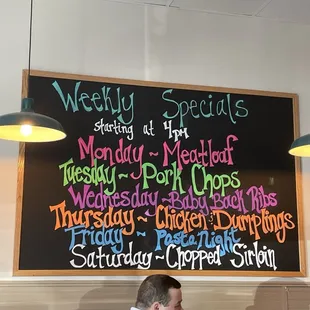 Weekly Specials
starting at 4pm
Monday ~ Meatloaf
Tuesday ~ Pork Chops
Wednesday ~ Baby Back Ribs
Thursday ~ Chicken & Dumplings
Friday ~ Pasta Night
Saturday ~ Chopped Sirloin